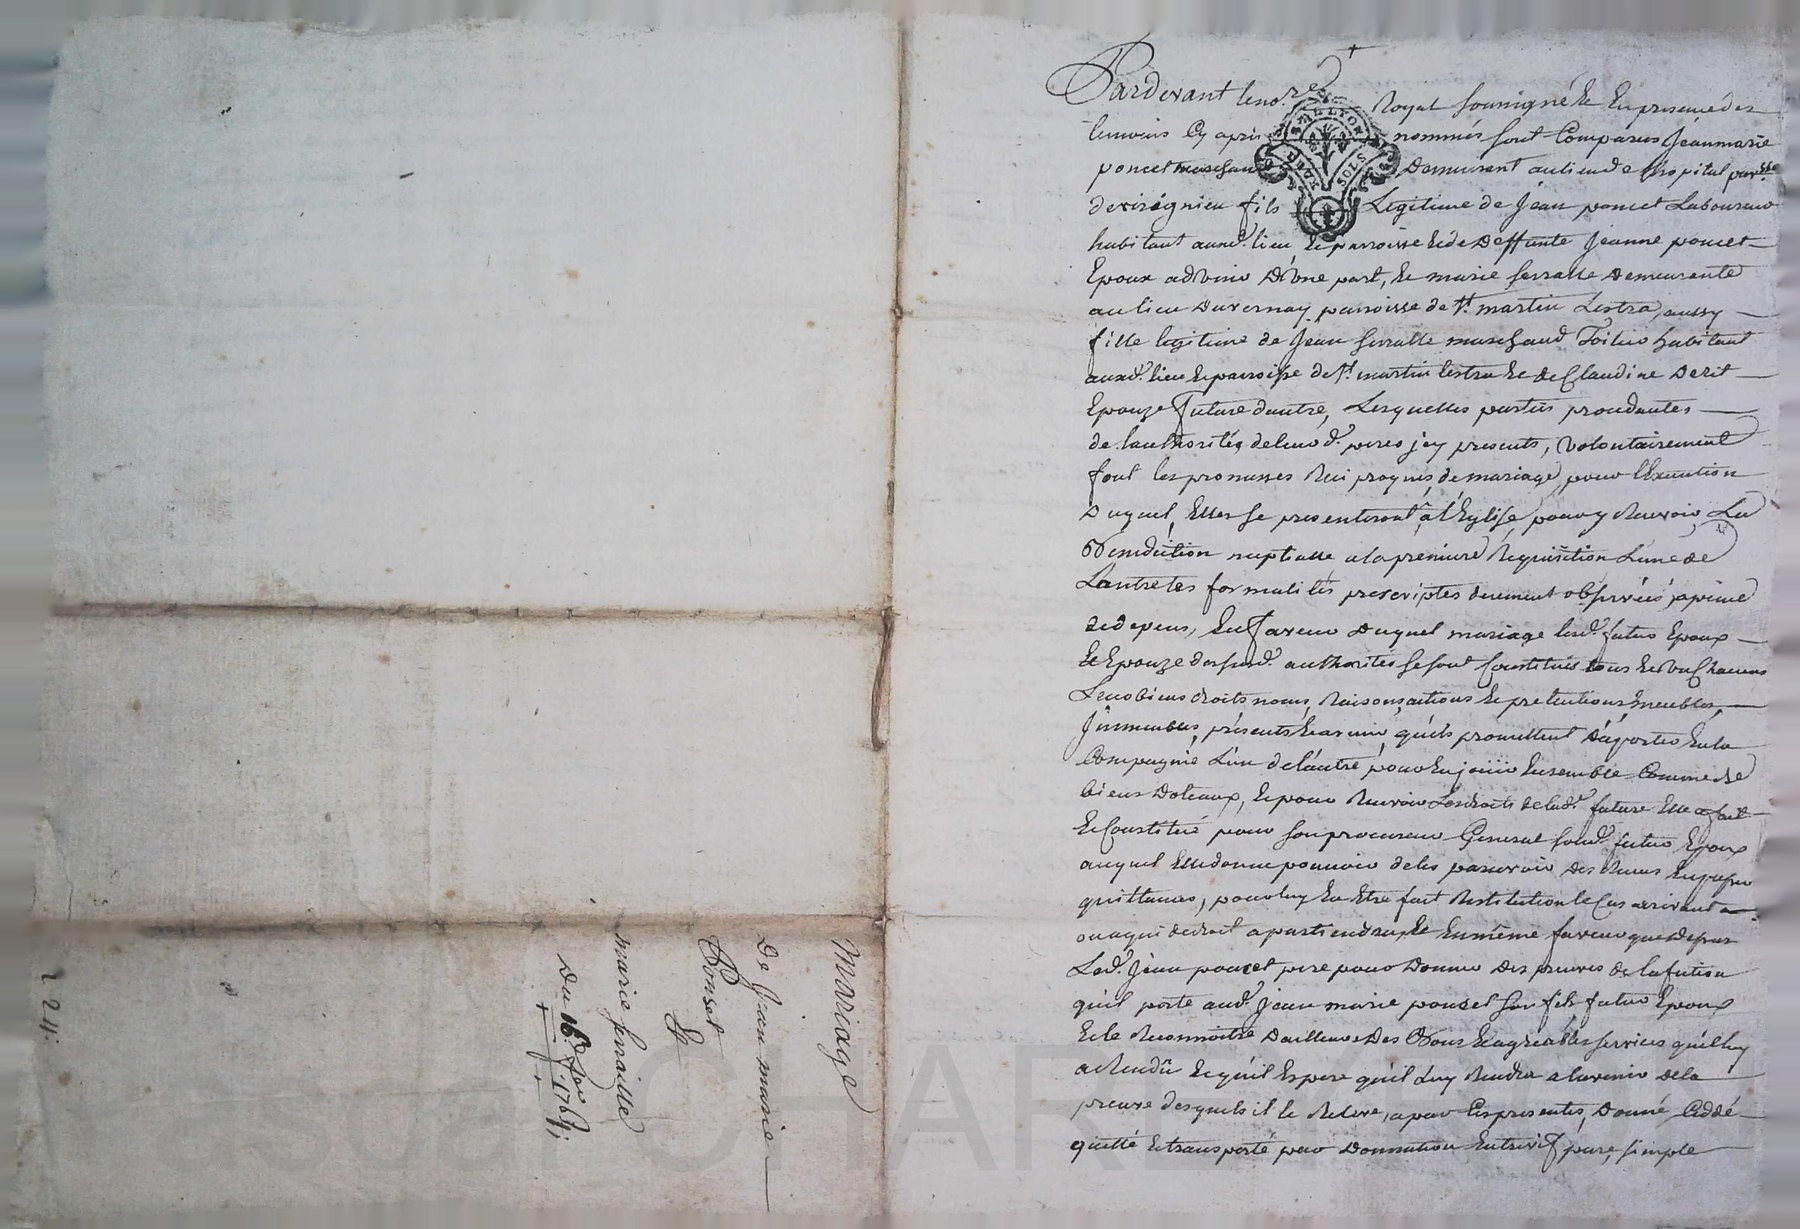 Mariage
De Jean marie
Ponset
Et
marie ferraille
Du 16e fev. 1764;
24.
Pardevant le no.re Royal soussigné Et En presence des
temoins Cy apres nommés sont Comparus Jean marie
poncet marchand Demeurant au lieu de lhopital par.sse
de virignieu fils Legitime de Jean poncet Laboureur
habitant aux d. lieu Et parroisse Et de Deffunte Jeanne poncet
Epoux advenir D'Une part, Et marie ferralle Demeurante
au lieu Duvernay parroisse de St. martin Lestra, aussy
fille legitime de Jean ferralle marchand Toilier habitant
aux d. lieu Et parroisse de St. martin lestra Et de Claudine Deret
Epouze future dautre, Lesquelles parties procedantes
de lauthorités de leurs d. peres jcy presents, volontairement
font les promesses Reciproques de mariage, pour lExecution
Duquel, Elles se presenteront à l'Eglise pour y Recevoir La
Benediction nuptialle a la premiere Requisition Lune de
Lautre les formalités prescriptes deuement observées a peine
de depens, En faveur Duquel mariage lesd. futurs Epoux
Et Epouze des susd. authorités se sont Constitués tous Et Uns Chacuns
Leurs biens droits noms, Raisons, actions Et pretentions, meubles,
Jmmeubles, présents Et avenir, qu'ils promettent D'aporter En la
Compagnie L'un de lautre, pour En joüir Ensemble Comme de
biens Doteaux, Et pour Recevoir Les droits de lad. future Elle a fait
Et Constitué pour son procureur General Led. futur Epoux
auquel Elle donne pouvoir de les percevoir Des Recus En passer
quittances, pour luy En Etre fait Restitution le Cas arrivant
ou a qui de droit apartiendra, Et En même faveur que Dessus
Led. Jean poncet pere pour Donner Des preuves de lafection
qu'il porte aud. Jean marie poncet son fils futur Epoux
Et le Reconnoitre Dailleurs Des Bons Et agreables services qu'il luy
a Rendû Et qu'il Espere qu'il Luy Rendra a lavenir De la
preuve desquels il le Releve, a par Ces presentes, Donné Ceddé
quitté Et transporté par Donnation Entrevif pure, simple